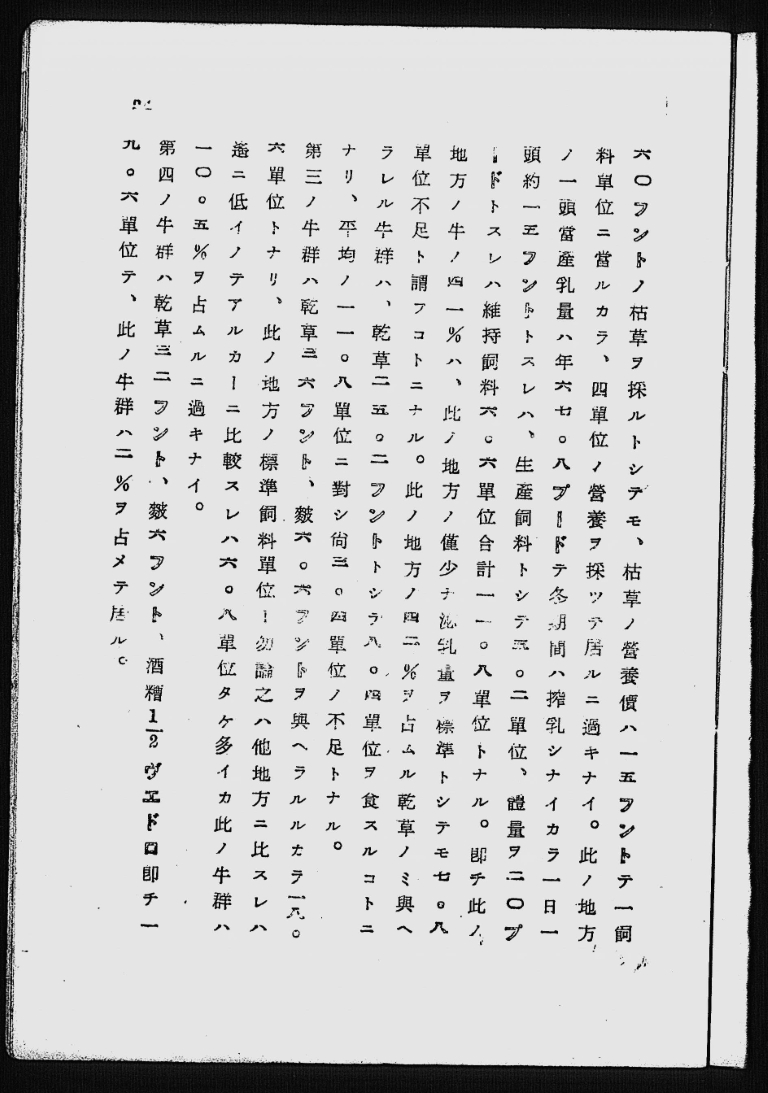 六〇フントノ枯草ヲ採ルトシテモ、枯草ノ營養價ハ一五フントテ一飼
料單位ニ當ルカラ、四單位ノ營養ヲ採ツテ居ルニ過キナイ。此ノ地方
ノ一頭當產乳量ハ年六七。八プードテ冬期間ハ搾乳シナイカラ一日一
頭約一五フントトスレハ、生產飼料トシテ五。二單位、體量ヲ二〇プ
ードトスレハ維持飼料六。六單位合計一一。八單位トナル。卽チ此ノ
地方ノ牛ノ四一%ハ、此ノ地方ノ僅少ナ泌乳量ヲ標準トシテモ七。八
單位不足ト謂フコトニナル。此ノ地方ノ四二%ヲ占ムル乾草ノミ與ヘ
ラレル牛群ハ、乾草二五。二フントトシテ八。四單位ヲ食スルコトニ
ナリ、平均ノ一一。八單位ニ對シ尙三。四單位ノ不足トナル。
第三ノ牛群ハ乾草三六フント、麬六。六フントヲ與ヘラルルカラ一八。
六單位トナリ、此ノ地方ノ標準飼料單位ー勿論之ハ他地方ニ比スレハ
遙ニ低イノテアルカーニ比較スレハ六。八單位タケ多イカ此ノ牛群ハ
一〇。五%ヲ占ムルニ過キナイ。
第四ノ牛群ハ乾草三二フント、麬六フント、酒糟1/2ヴエドロ卽チ一
九。六單位テ、此ノ牛群ハ二%ヲ占メテ居ル。